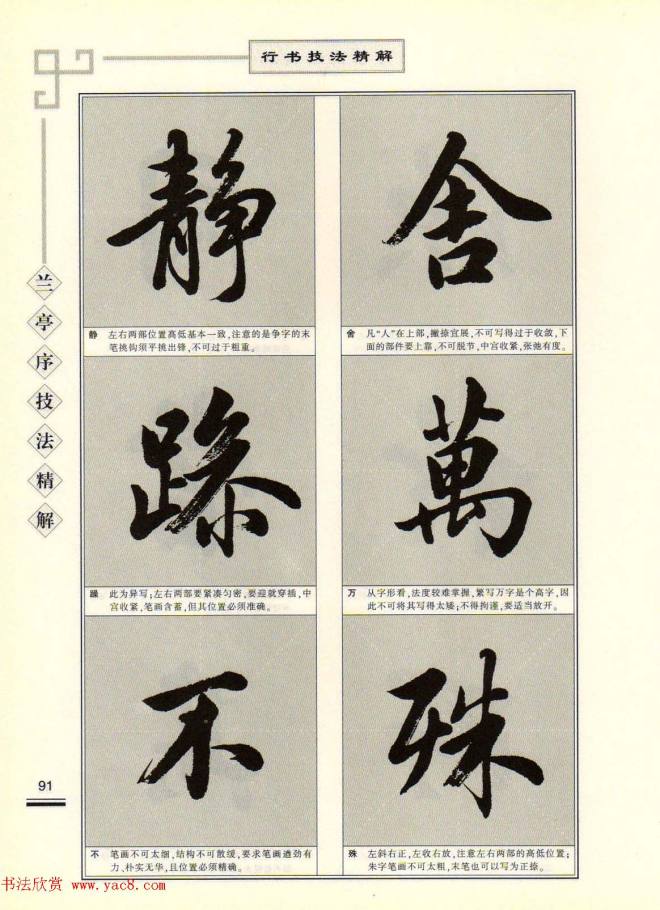 行书技法精解
兰亭序技法精解
静
舍
静 左右两部位置高低基本一致,注意的是争字的末
笔挑钩须平挑出锋,不可过于粗重。
舍 凡“人”在上部,撇捺宜展,不可写得过于收敛,下
面的部件要上靠,不可脱节,中宫收紧,张弛有度。
萬
躁 此为异写;左右两部要紧凑匀密,要迎就穿插,中
宫收紧,笔画含蓄,但其位置必须准确。
万 从字形看,法度较难掌握,繁写万字是个高字,因
此不可将其写得太矮;不得拘谨,要适当放开。
不
殊
不 笔画不可太细,结构不可散缓,要求笔画遒劲有
力、朴实无华,且位置必须精确。
殊 左斜右正,左收右放,注意左右两部的高低位置;
朱字笔画不可太粗,末笔也可以写为正捺。
91
书法欣赏 www.yac8.com